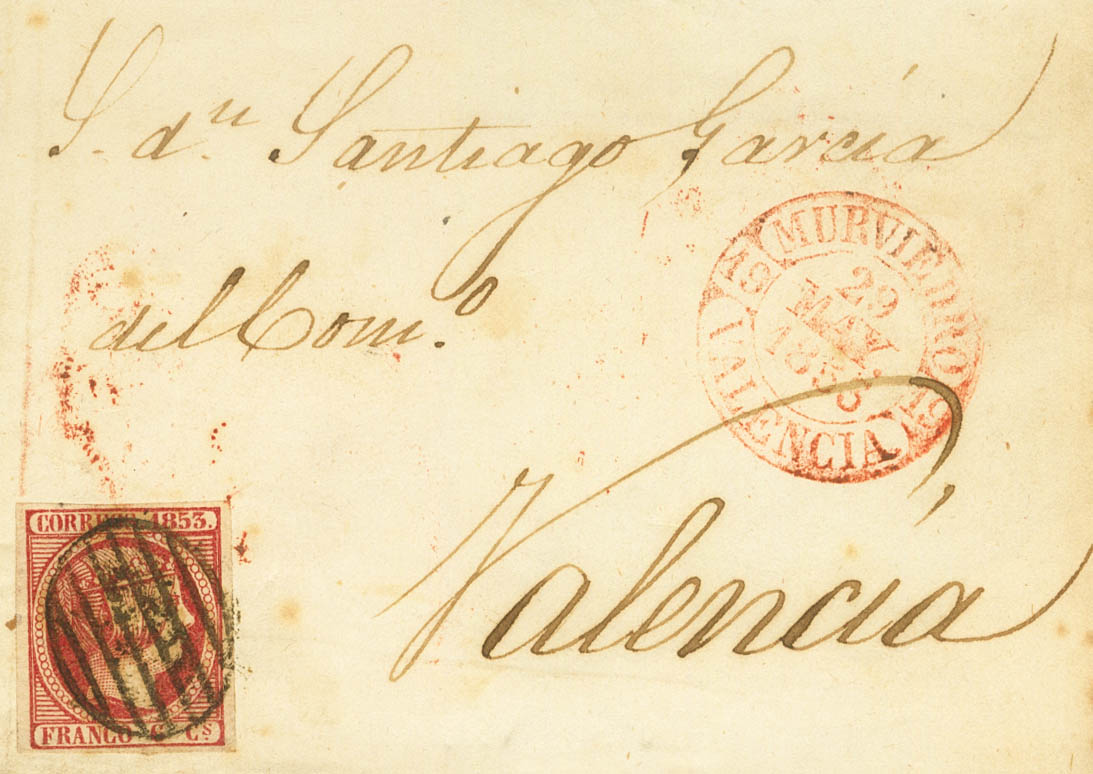 S. dn. Santiago García
del Como.
Valencia
19 MURVIEDRO 19
29
MAY.
1853
VALENCIA
CORREOS 1853.
FRANCO 6 Cs